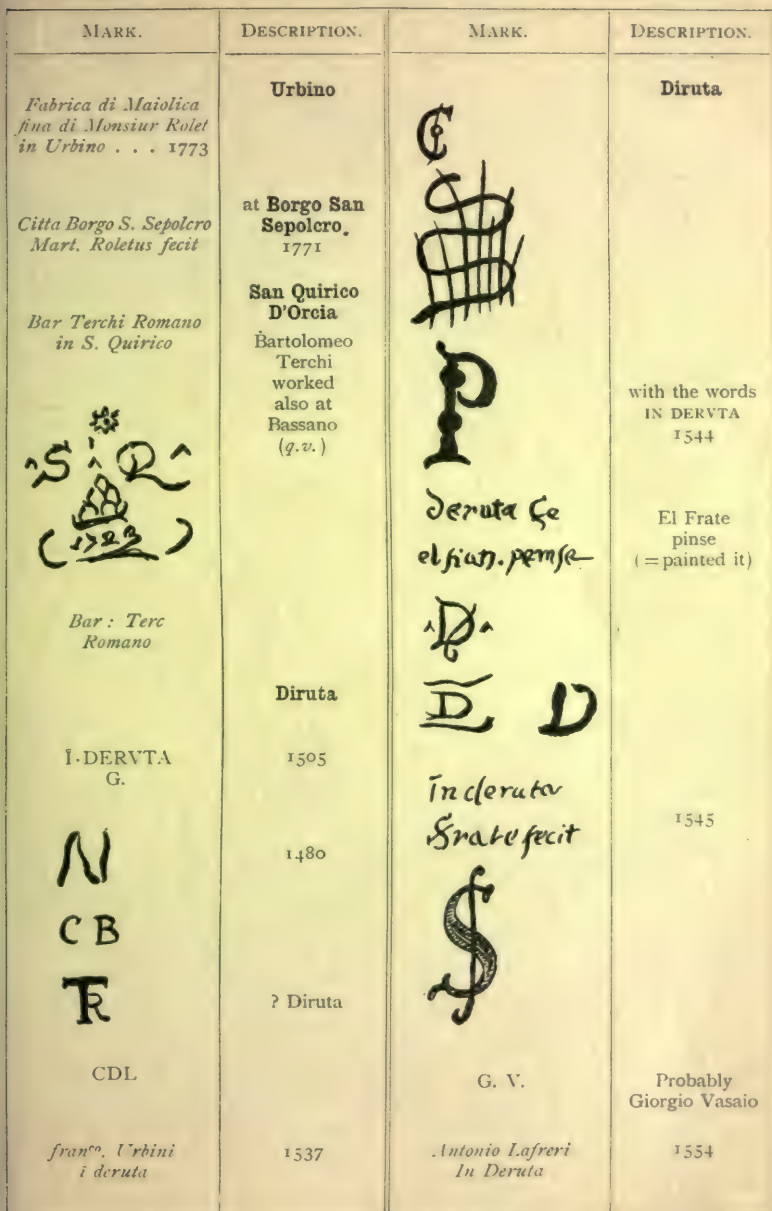 MARK.
DESCRIPTION.
Fabrica di Maiolica
fina di Monsiur Rolet
in Urbino . . . 1773
Urbino
Citta Borgo S. Sepolcro
Mart. Roletus fecit
at Borgo San
Sepolcro.
1771
Bar Terchi Romano
in S. Quirico
San Quirico
D'Orcia
Bartolomeo
Terchi
worked
also at
Bassano
(q.v.)
S R
1723
Bar : Terc
Romano
Diruta
Ī·DERVTA
G.
1505
N
1480
C B
TR
? Diruta
CDL
franco. Urbini
i deruta
1537
MARK.
DESCRIPTION.
Diruta
C
S
P
with the words
IN DERVTA
1544
deruta
el frate pense
El Frate
pinse
(=painted it)
D
D D
In deruta
frate fecit
1545
S
G. V.
Probably
Giorgio Vasaio
Antonio Lafreri
In Deruta
1554